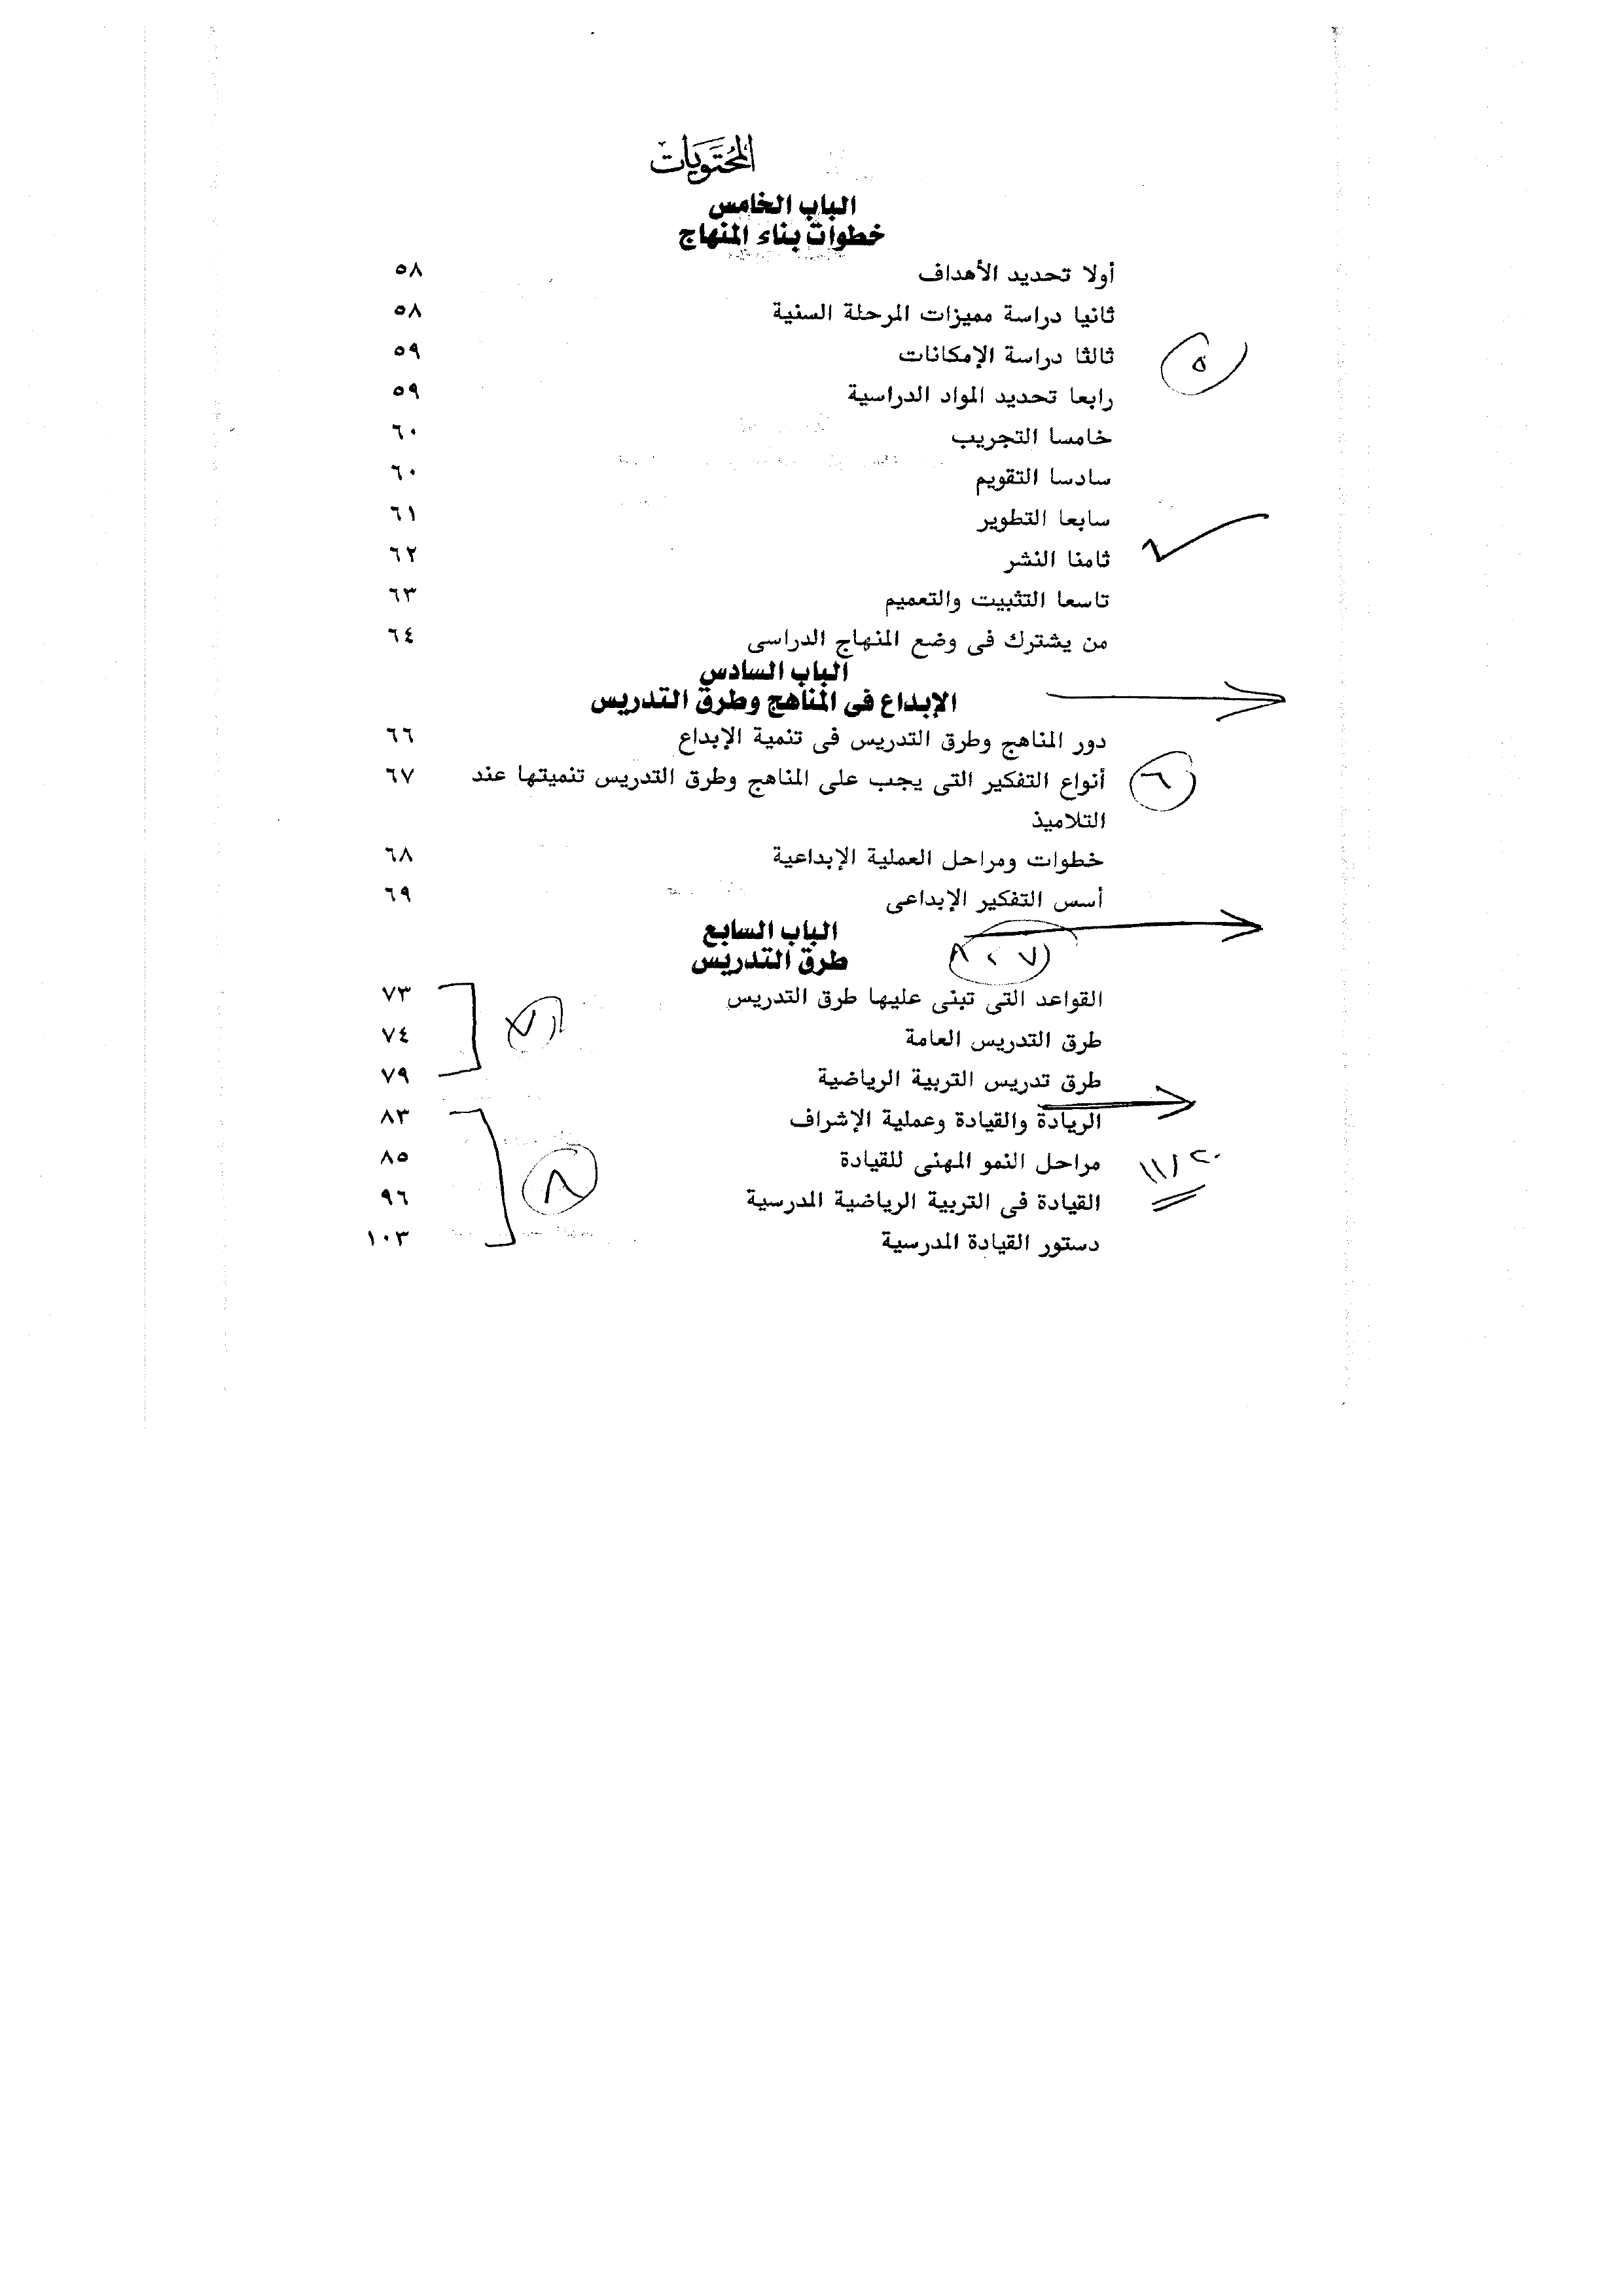 المحتويات
الباب الخامس
خطوات بناء المنهاج
أولا تحديد الأهداف ٥٨
ثانيا دراسة مميزات المرحلة السنية ٥٨
ثالثا دراسة الإمكانات ٥٩
٥
رابعا تحديد المواد الدراسية ٥٩
خامسا التجريب ٦٠
سادسا التقويم ٦٠
سابعا التطوير ٦١
ثامنا النشر ٦٢
تاسعا التثبيت والتعميم ٦٣
من يشترك فى وضع المنهاج الدراسى ٦٤
الباب السادس
الإبداع فى المناهج وطرق التدريس
دور المناهج وطرق التدريس فى تنمية الإبداع ٦٦
٦
أنواع التفكير التى يجب على المناهج وطرق التدريس تنميتها عند ٦٧
التلاميذ
خطوات ومراحل العملية الإبداعية ٦٨
أسس التفكير الإبداعى ٦٩
الباب السابع
طرق التدريس
٧ ، ٨
القواعد التى تبنى عليها طرق التدريس ٧٣
طرق التدريس العامة ٧٤
٧
طرق تدريس التربية الرياضية ٧٩
الريادة والقيادة وعملية الإشراف ٨٣
مراحل النمو المهنى للقيادة ٨٥
١١/٢٠
٨
القيادة فى التربية الرياضية المدرسية ٩٦
دستور القيادة المدرسية ١٠٣